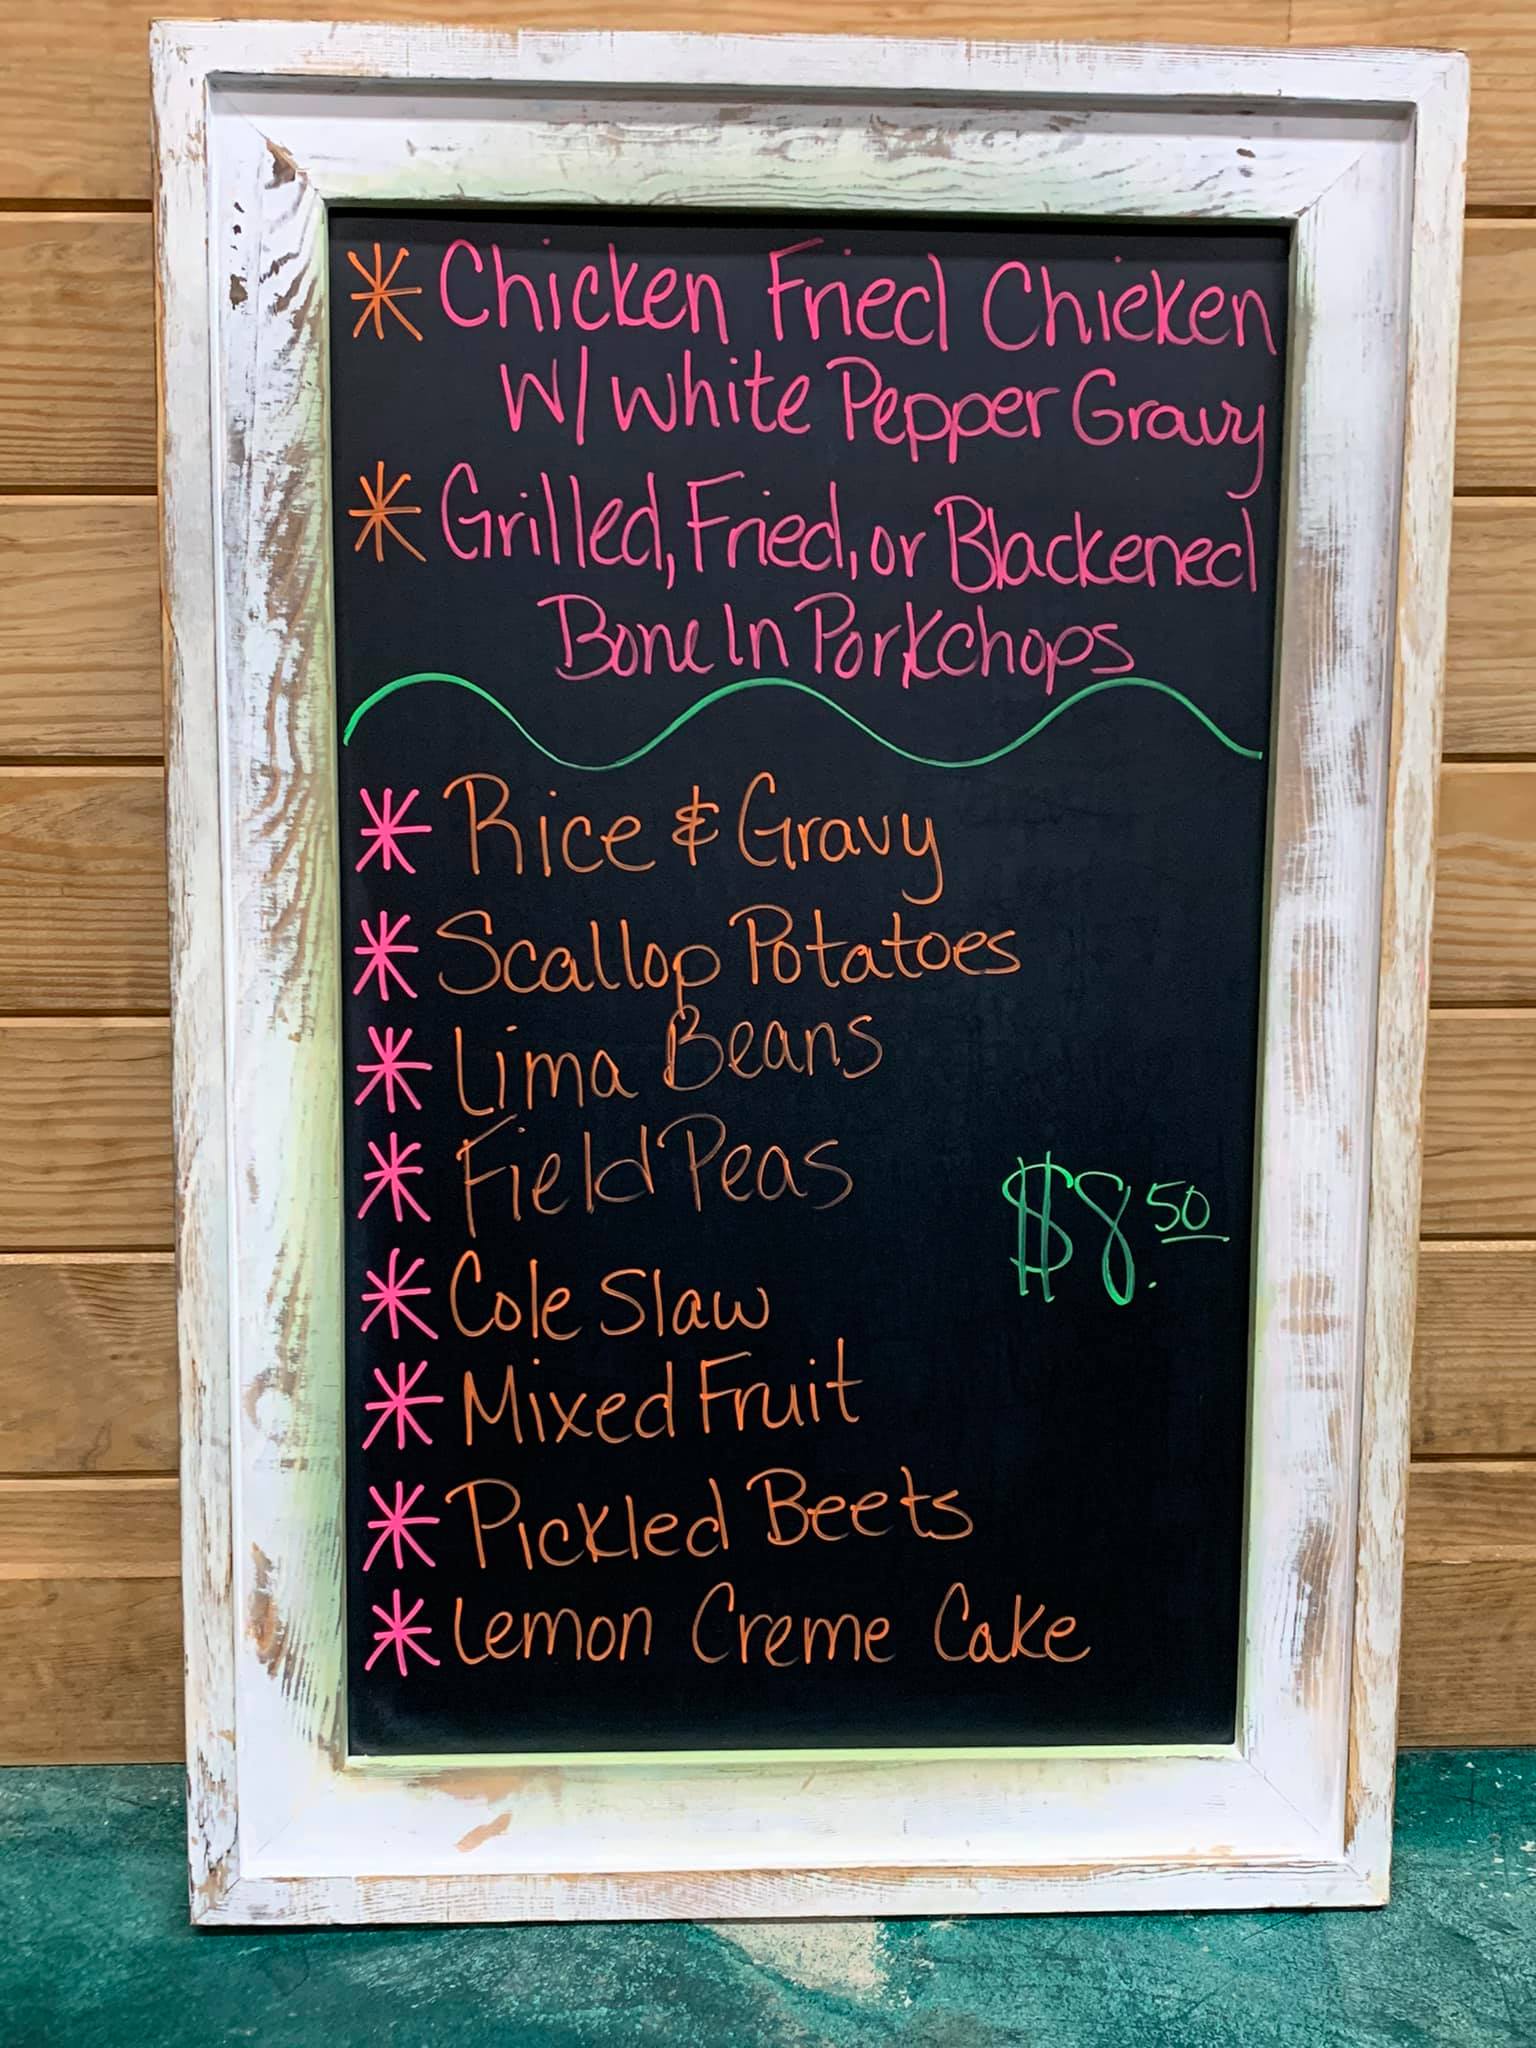 * Chicken Fried Chicken
W/ White Pepper Gravy
* Grilled, Fried, or Blackened
Bone In Porkchops
* Rice & Gravy
* Scallop Potatoes
* Lima Beans
* Field Peas
* Cole Slaw
* Mixed Fruit
* Pickled Beets
* Lemon Creme Cake
$8.50